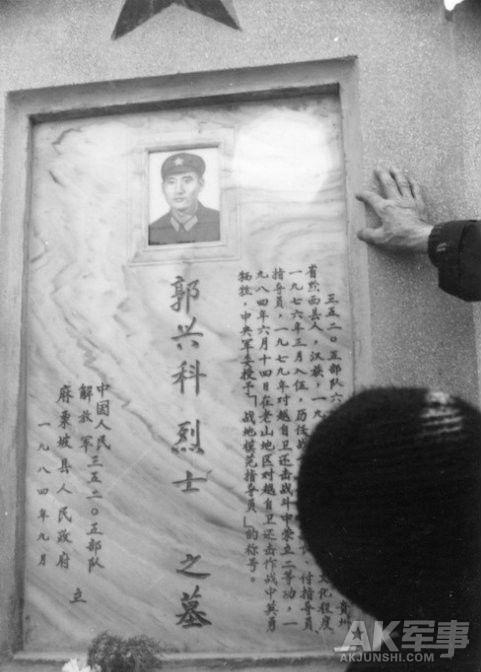 三五二〇五部队六 贵州
省黔西县人，汉族，一九 文化程度
一九七六年三月入伍，历任战 长、付指导员
指导员，一九七九年对越自卫还击战斗中荣立二等功，一
九八四年六月十四日在老山地区对越自卫还击作战中英勇
牺牲，中央军委授予「战地模范指导员」的称号。
郭兴科烈士之墓
中国人民
解放军三五二〇五部队
麻栗坡县人民政府 立
一九八四年九月
AK军事
AKJUNSHI.COM